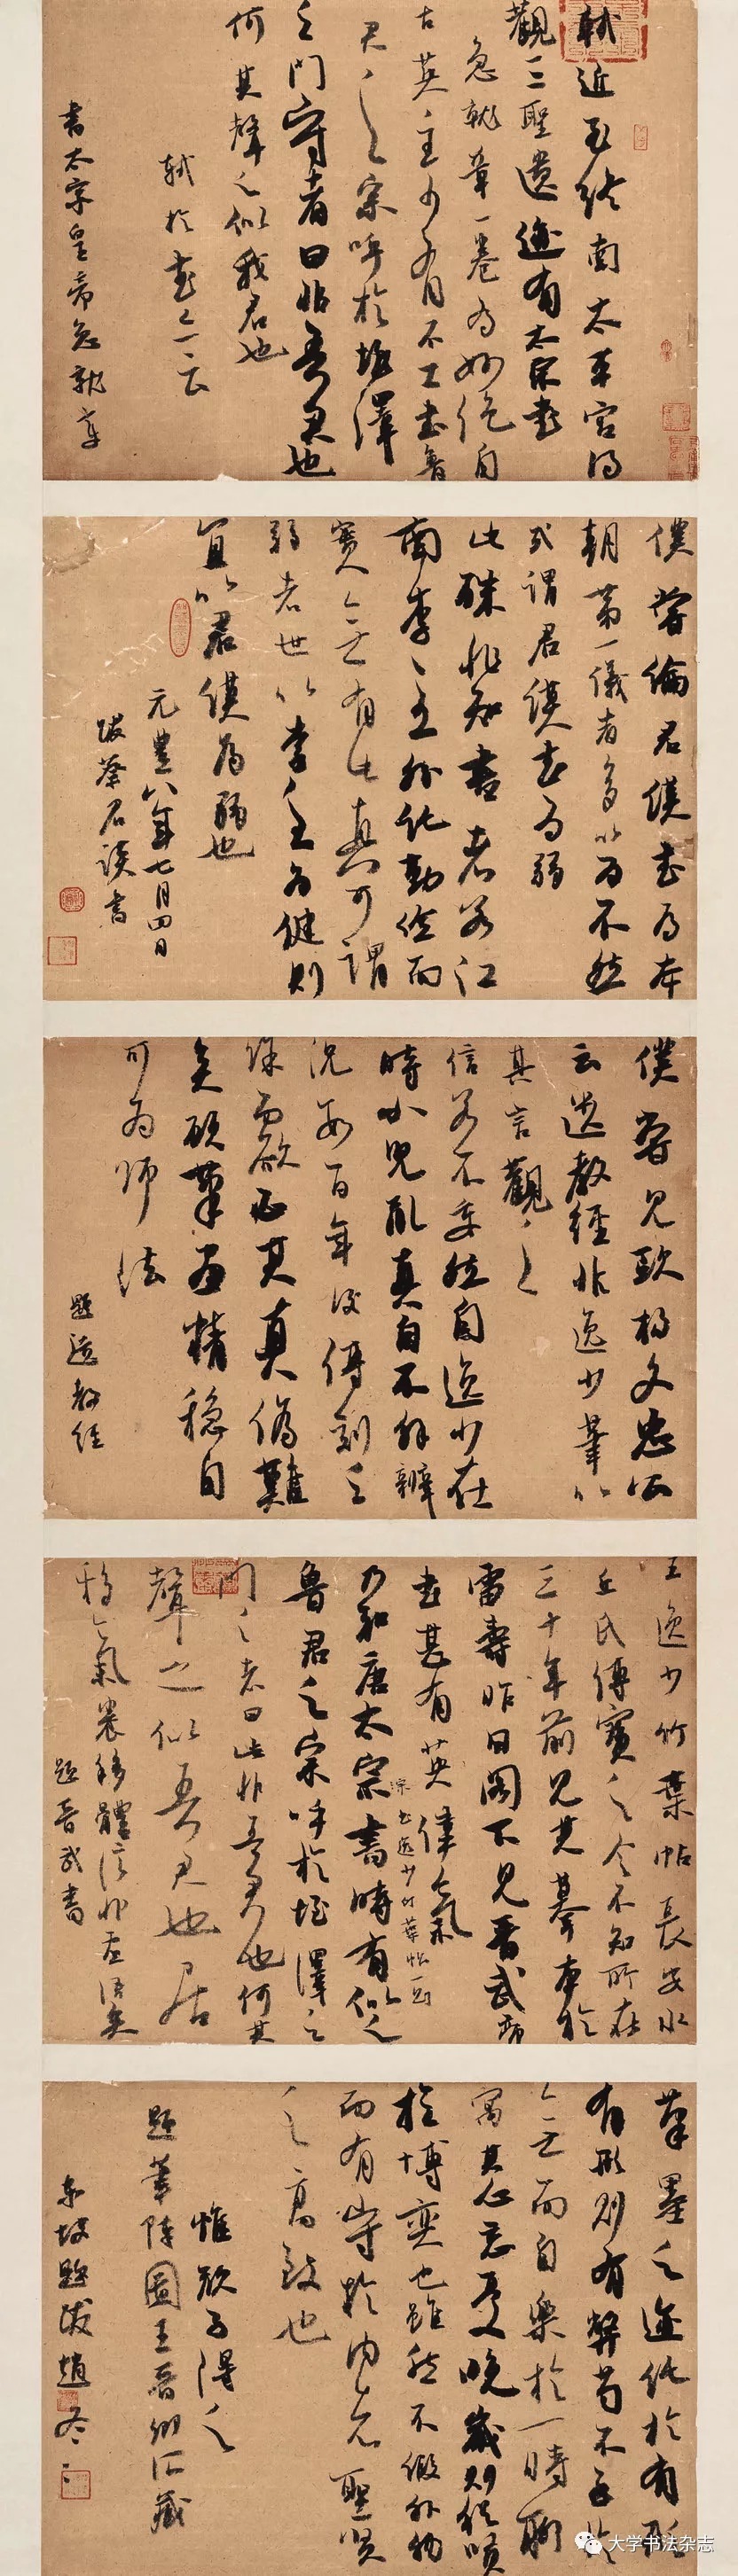 軾近至終南太平宮得
觀三聖遺迹有太宗書
急就章一卷為妙絕自
古英主少有不工書魯
君之宋呼於垤澤
之門守者曰非吾君也
何其聲之似我君也
軾於書亦云
書太宗皇帝急就章
僕嘗論君謨書為本
朝第一議者多以為不然
或謂君謨書為弱
此殊非知書者若江
南李主外託勁險而
實無有此真可謂
弱者世以李主為健則
宜以君謨為弱也
元豐八年七月四日
跋蔡君謨書
僕嘗見歐楊文忠公
云遺教經非逸少筆以
其言觀之
信若不妄然自逸少在
時小兒亂真自不解辨
況數百年後傳刻之
餘而欲必其真偽難
矣顧筆畫精穩自
可為師法
題遺教經
王逸少竹葉帖長安水
丘氏傳寶之今不知所在
三十年前見其摹本於
雷壽昨日閣下見晉武帝
書甚有英偉氣
乃知唐太宗書時有似之
魯君之宋呼於垤澤之
門門者曰此非吾君也何其
聲之似吾君也居
移氣養移體信非虛語矣
題晉武書
筆墨之迹託於有形
有形則有弊苟不至於
無而自樂於一時聊
寓其心忘憂晚歲則猶賢
於博奕也雖然不假外物
而有守於內者聖賢
之高致也
惟顏子得之
題筆陣圖王晉卿所藏
東坡題跋趙冬
大学书法杂志